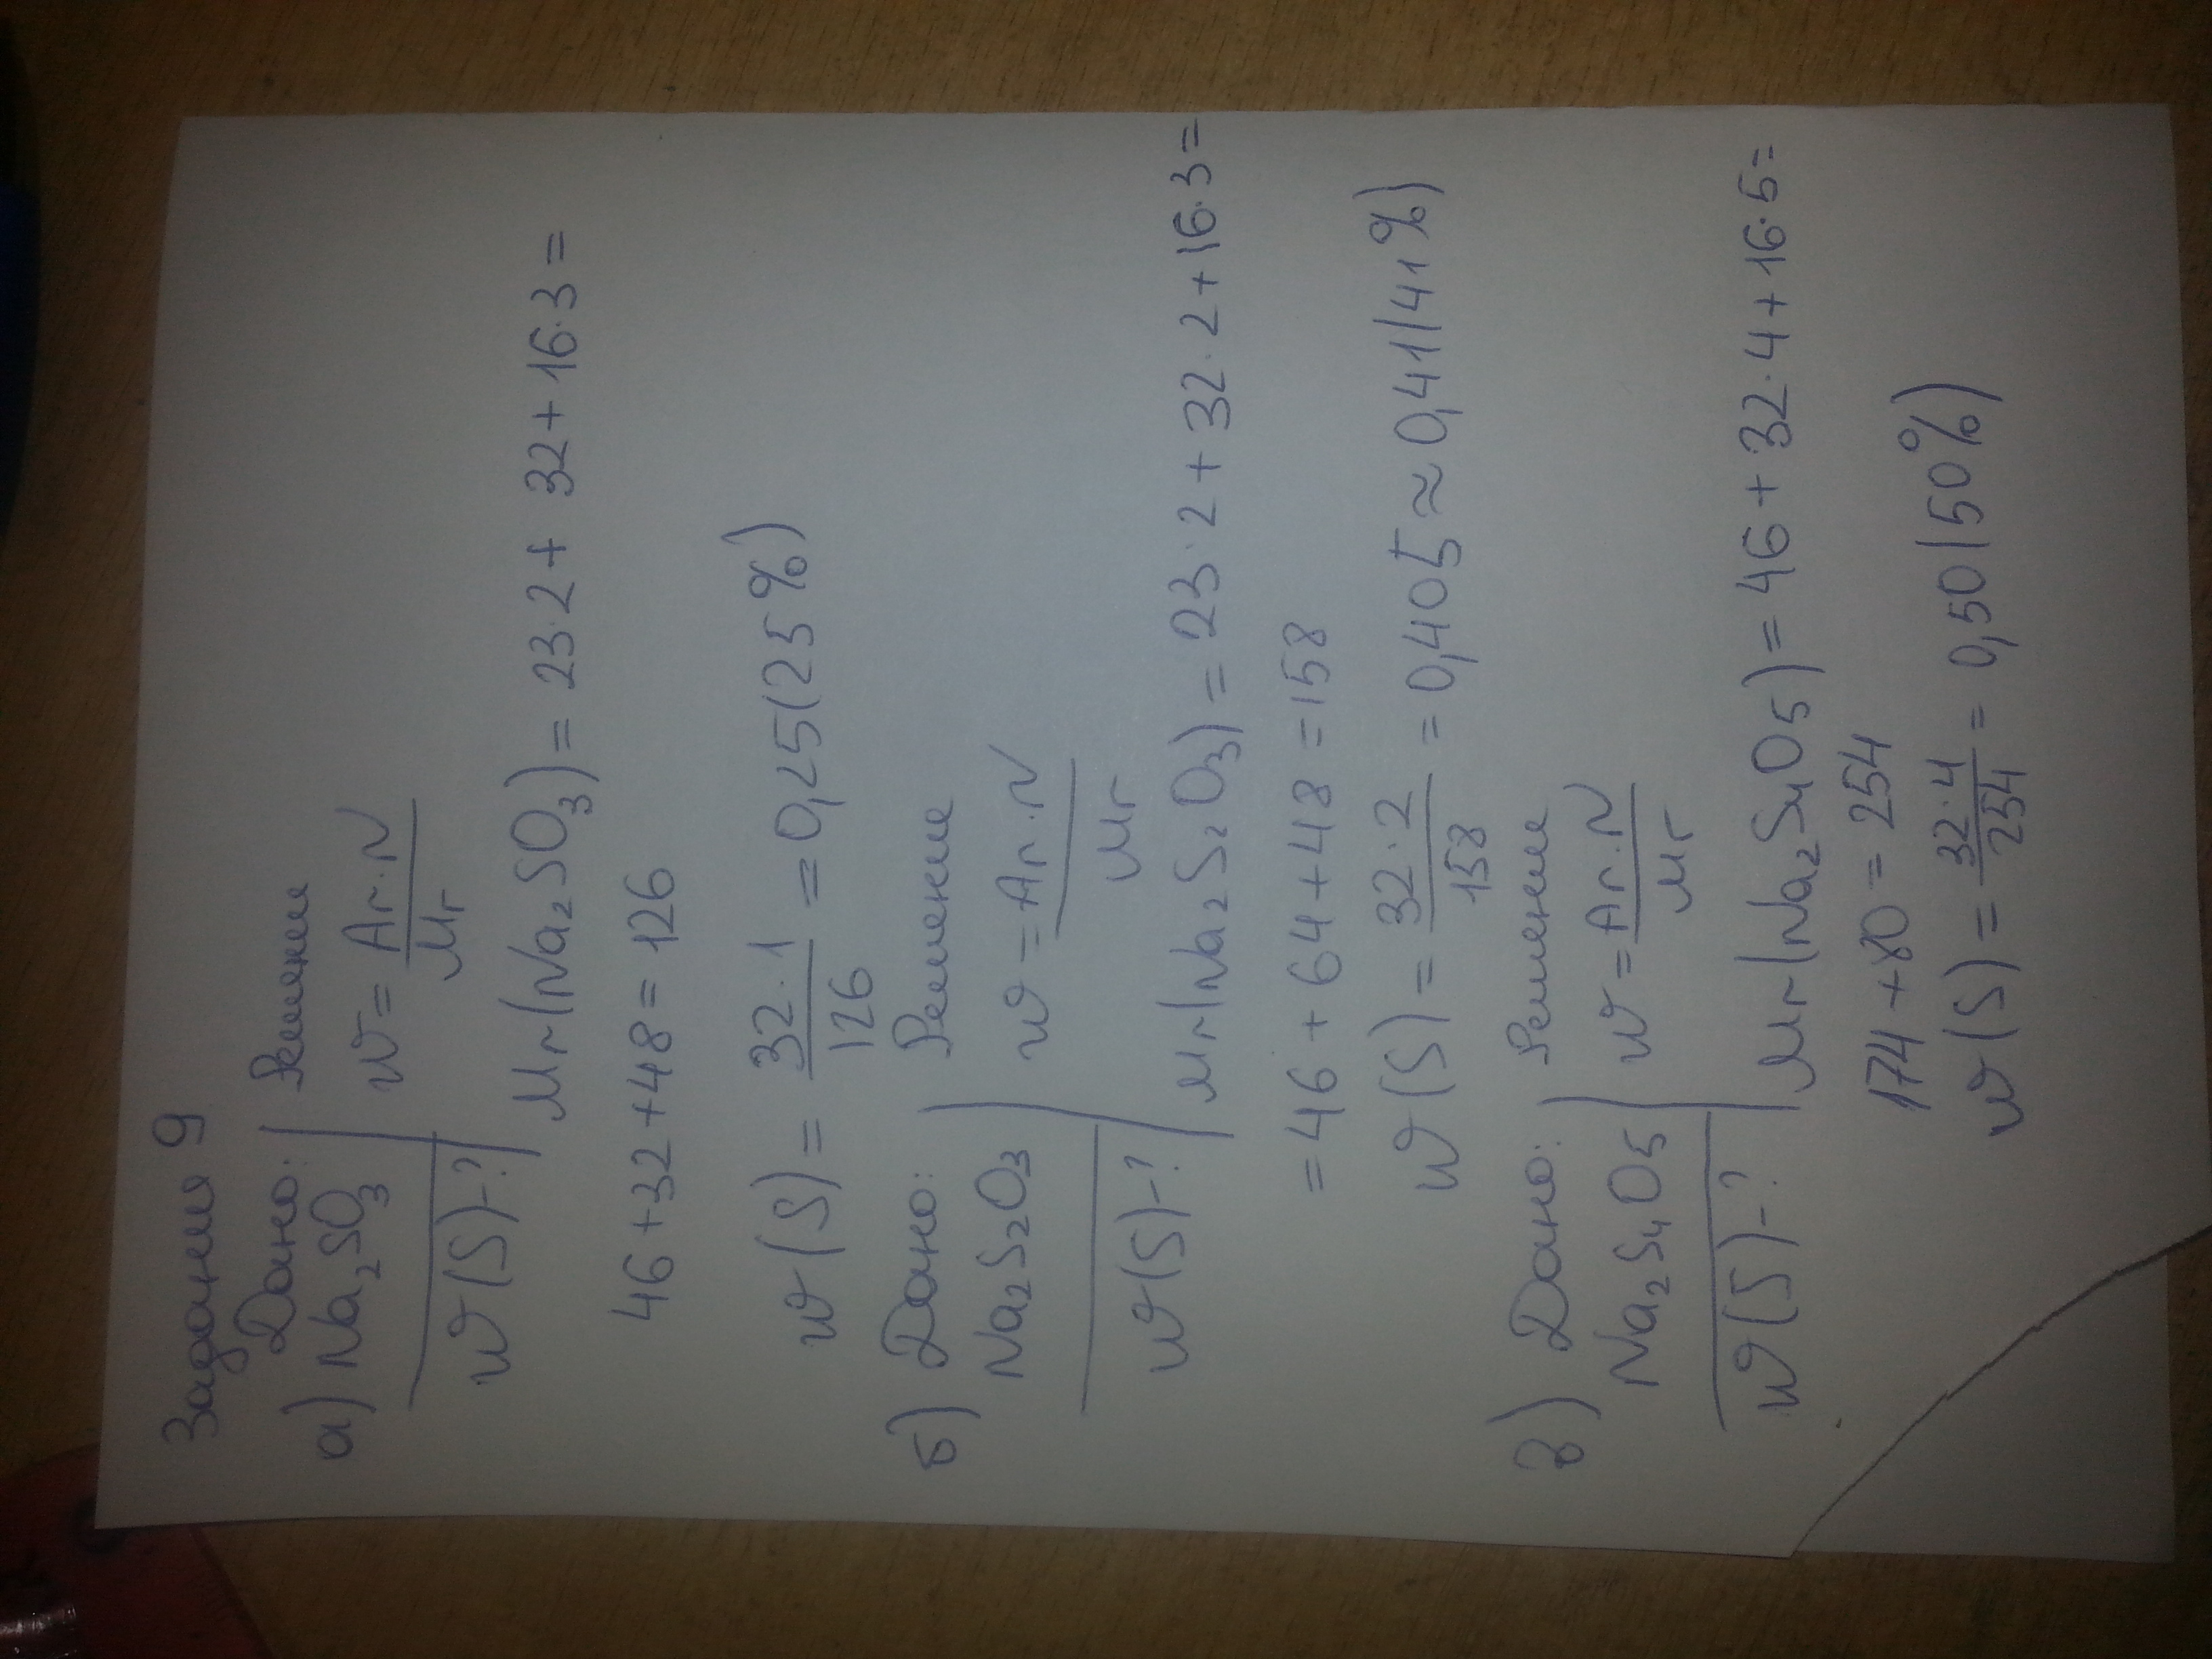 Задание 9
Дано:
а) Na₂SO₃
w(S)-?
Решение
w = Ar·N / Mr
Mr(Na₂SO₃) = 23·2 + 32 + 16·3 =
46+32+48 = 126
w(S) = 32·1 / 126 = 0,25(25%)
б) Дано:
Na₂S₂O₃
w(S)-?
Решение
w = Ar·N / Mr
Mr(Na₂S₂O₃) = 23·2 + 32·2 + 16·3 =
= 46 + 64 + 48 = 158
w(S) = 32·2 / 158 = 0,405 ≈ 0,41(41%)
в) Дано:
Na₂S₄O₅
w(S)-?
Решение
w = Ar·N / Mr
Mr(Na₂S₄O₅) = 46 + 32·4 + 16·5 =
174 + 80 = 254
w(S) = 32·4 / 254 = 0,50(50%)